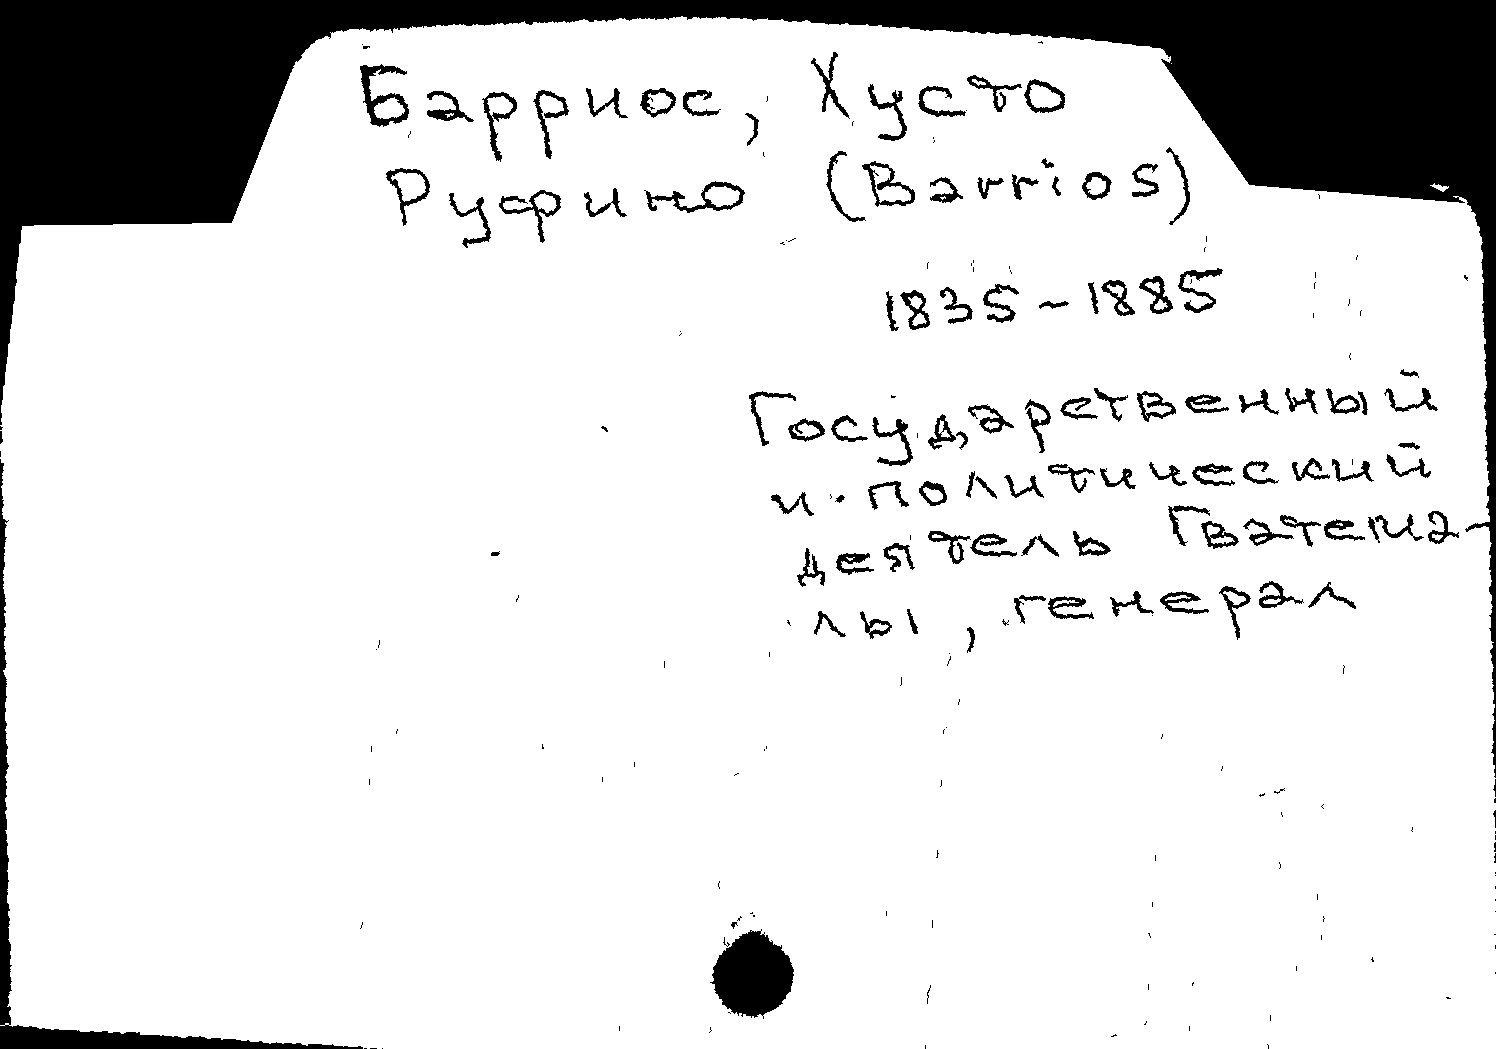 Барриос, Хусто
Руфино (Barrios)
1835-1885
Государственный
и политический
деятель Гватема-
лы, генерал